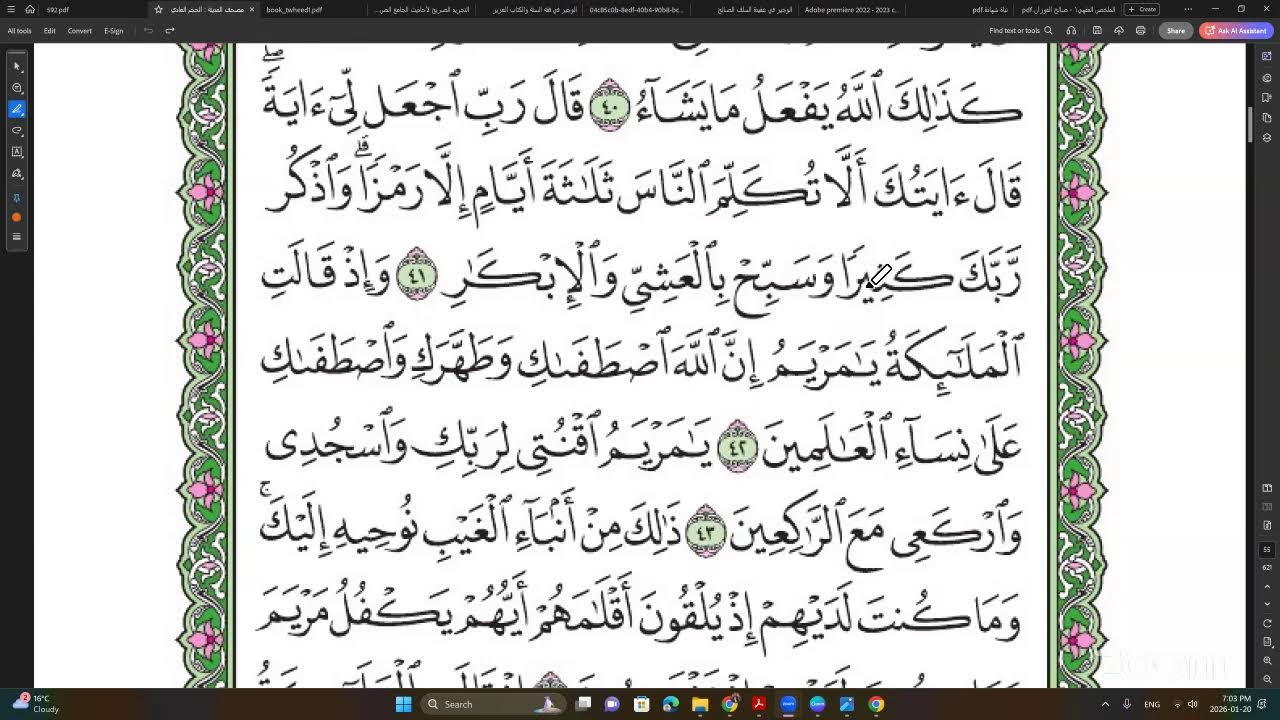 592.pdf
مصحف المدينة - الحجم العادي
book_tweheedl.pdf
التجريد الصريح لأحاديث الجامع الص...
الوجيز في فقه السنة والكتاب العزيز
04c85c0b-8edf-40b4-90b8-bc...
الوجيز في عقيدة السلف الصالح
Adobe premiere 2022 - 2023 c...
الملخص الفقهي١ - صالح الفوزان.pdf
Create
All tools Edit Convert E-Sign
Find text or tools
Share
Ask AI Assistant
كَذَٰلِكَ ٱللَّهُ يَفْعَلُ مَا يَشَآءُ ٤٠ قَالَ رَبِّ ٱجْعَل لِّيٓ ءَايَةٗۖ
قَالَ ءَايَتُكَ أَلَّا تُكَلِّمَ ٱلنَّاسَ ثَلَٰثَةَ أَيَّامٍ إِلَّا رَمۡزٗاۗ وَٱذْكُر
رَّبَّكَ كَثِيرٗا وَسَبِّحْ بِٱلْعَشِيِّ وَٱلْإِبْكَٰرِ ٤١ وَإِذْ قَالَتِ
ٱلْمَلَٰٓئِكَةُ يَٰمَرْيَمُ إِنَّ ٱللَّهَ ٱصْطَفَىٰكِ وَطَهَّرَكِ وَٱصْطَفَىٰكِ
عَلَىٰ نِسَآءِ ٱلْعَٰلَمِينَ ٤٢ يَٰمَرْيَمُ ٱقْنُتِي لِرَبِّكِ وَٱسْجُدِي
وَٱرْكَعِي مَعَ ٱلرَّٰكِعِينَ ٤٣ ذَٰلِكَ مِنْ أَنۢبَآءِ ٱلْغَيْبِ نُوحِيهِ إِلَيْكَۚ
وَمَا كُنتَ لَدَيْهِمْ إِذْ يُلْقُونَ أَقْلَٰمَهُمْ أَيُّهُمْ يَكْفُلُ مَرْيَمَ
55
627
zoom
16°C
Cloudy
Search
ENG
7:03 PM
2026-01-20